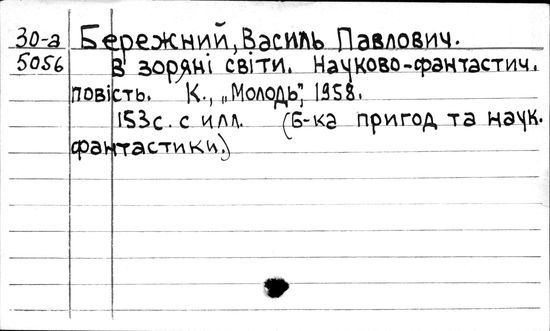 30-а Бережний, Василь Павлович.
5056 В зоряні світи. Науково-фантастич.
повість. К., „Молодь", 1958.
153с. с илл. (Б-ка пригод та наук.
фантастики.)